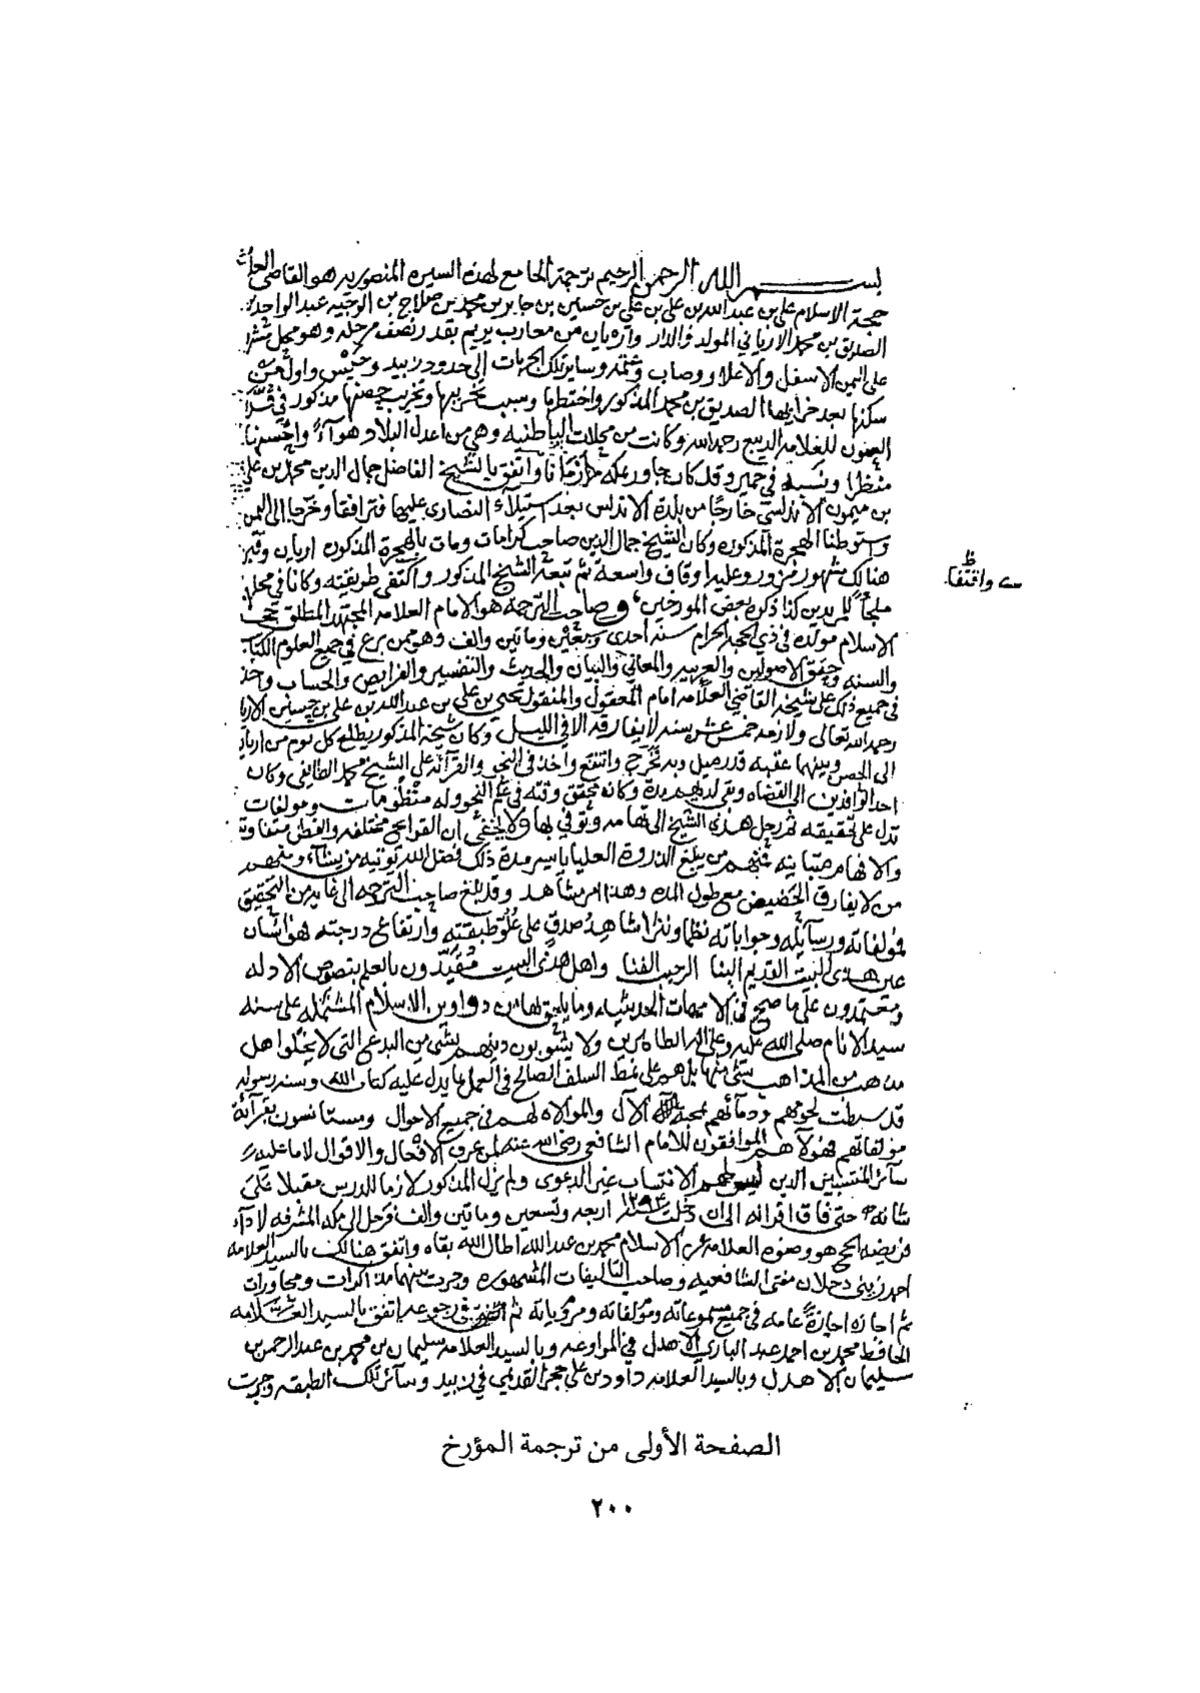 بسم الله الرحمن الرحيم ترجمة الجامع لهذه السيره المنصوريه هو القاضي
حجة الاسلام علي بن عبدالله بن علي بن علي بن حسين بن جابر بن محمد بن صلاح بن الوجيه عبد الواحد بن
الصديق بن محمد الارياني المولد والدار واريان من معارب يريم بقدر نصف مرحله وهو محل
على اليمن الاسفل والاعلا ووصاب وعتمه وساير تلك الجهات الى حدود زبيد وحيس واول من
سكنها بعد خرابها الصديق بن محمد المذكور واختطها وسبب تخريبها وتخريب حصنها مذكور في قرة
العيون للعلامه الديبع رحمه الله وكانت من محلات الباطنيه وهي من اعدل البلاد هواءً واحسنها
منظرا ونسبه في حمير وقد كان جاور بمكه زمانا واتفق بالشيخ الفاضل جمال الدين محمد بن علي
بن ميمون الاندلسي خارجًا من بلدة الاندلس بعد استيلاء النصارى عليها فترافقا وخرجا الى اليمن
واستوطنا الهجرة المذكوره وكان الشيخ جمال الدين صاحب كرامات ومات بالهجرة المذكوره اريان وقبره
هنالك مشهور مزور وعليه اوقاف واسعة ثم تبعه الشيخ المذكور واكتفى طريقته وكانا في محلهما
واقتفا
ملجأ للمريدين كذا ذكره بعض المورخين وصاحب الترجمه هو الامام العلامه المجتهد المطلق حجة
الاسلام مولده في ذي الحجه الحرام سنه احدى وسبعين وماتين والف وهو ممن برع في جميع العلوم الكتاب
والسنه وحقق الاصولين والعربيه والمعاني والبيان والحديث والتفسير والفرايض والحساب واخذ
في جميع ذلك على شيخه القاضي العلامه امام المعقول والمنقول يحيى بن علي بن عبدالله بن علي بن حسين الارياني
رحمه الله تعالى ولازمه خمس عشر سنه لا يفارقه الا في الليل وكان شيخه المذكور يطلع كل يوم من اريان
الى الحصن وبينهما عقبه قدر ميل وبه تخرج وانتفع واخذ في النحو والقرآئه على الشيخ محمد الطايفي وكان
احد الوافدين الى القضاه وبقي لديهم مدة وكان له تحقق وثقه في علم النحو وله منظومات ومولفات
تدل على تحقيقه ثم رحل هذا الشيخ الى تهامه وتوفي بها ولا يخفى ان القرايح مختلفه والفطن متفاوته
والافهام متباينه فمنهم من يبلغ الذروة العليا بايسر مدة ذلك فضل الله يوتيه من يشآء ومنهم
من لا يفارق الحضيض مع طول المده وهذا امر مشاهد وقد بلغ صاحب الترجمه الى غاية من التحقيق
فمولفاته ورسآئله وجواباته نظما ونثرا شاهد صدق على علو طبقته وارتفاع درجته هو انسان
عين هذا البيت القديم البنا الرحيب الفنا واهل هذا البيت مقيدون بالعلم بنصوص الادله
ومعتمدون على ما صح في الامهات الحديثيه وما يلحق بها من دواوين الاسلام المشتمله على سنه
سيد الانام صلى الله عليه وعلى اله الطاهرين ولا يشوبون دينهم بشئ من البدع التي لا يخلوا اهل
مذهب من المذاهب بشئ منها بل هم على نمط السلف الصالح في العمل بما يدل عليه كتاب الله وسنه رسوله
قد سيطت لحومهم ودمائهم بمحبة الآل والموالاه لهم في جميع الاحوال ومستانسون بقرآئة
مولفاتهم فهولآء هم الموافقون للامام الشافعي رضي الله عنه لمن عرف الافعال والاقوال لا ما عليه
سآئر المنتسبين الذين ليس لهم الا نتساب غير الدعوى ولم يزل المذكور لازما للدرس مقبلا على
شانه حتى فاق اقرانه الى ان دخلت سنه ١٢٩٤ اربعه وتسعين وماتين والف فرحل الى مكه المشرفه لادآء
فريضه الحج هو وصنوه العلامه عز الاسلام محمد بن عبدالله اطال الله بقاه واتفق هنالك بالسيد العلامه
احمد زيني دحلان مفتي الشافعيه وصاحب التاليفات المشهوره وجرت بينهما مذاكرات ومحاورات
ثم اجازه اجازةً عامه في جميع مسموعاته ومولفاته ومروياته ثم اتفق في رجوعه اتفق بالسيد العلامه
الحافظ محمد بن احمد عبد الباري الاهدل في المراوعه وبالسيد العلامه سليمان بن محمد بن عبد الرحمن بن
سليمان الاهدل وبالسيد العلامه داود بن علي حجر القديمي في زبيد وسآئر تلك الطبقه وجرت
الصفحة الأولى من ترجمة المؤرخ
٢٠٠